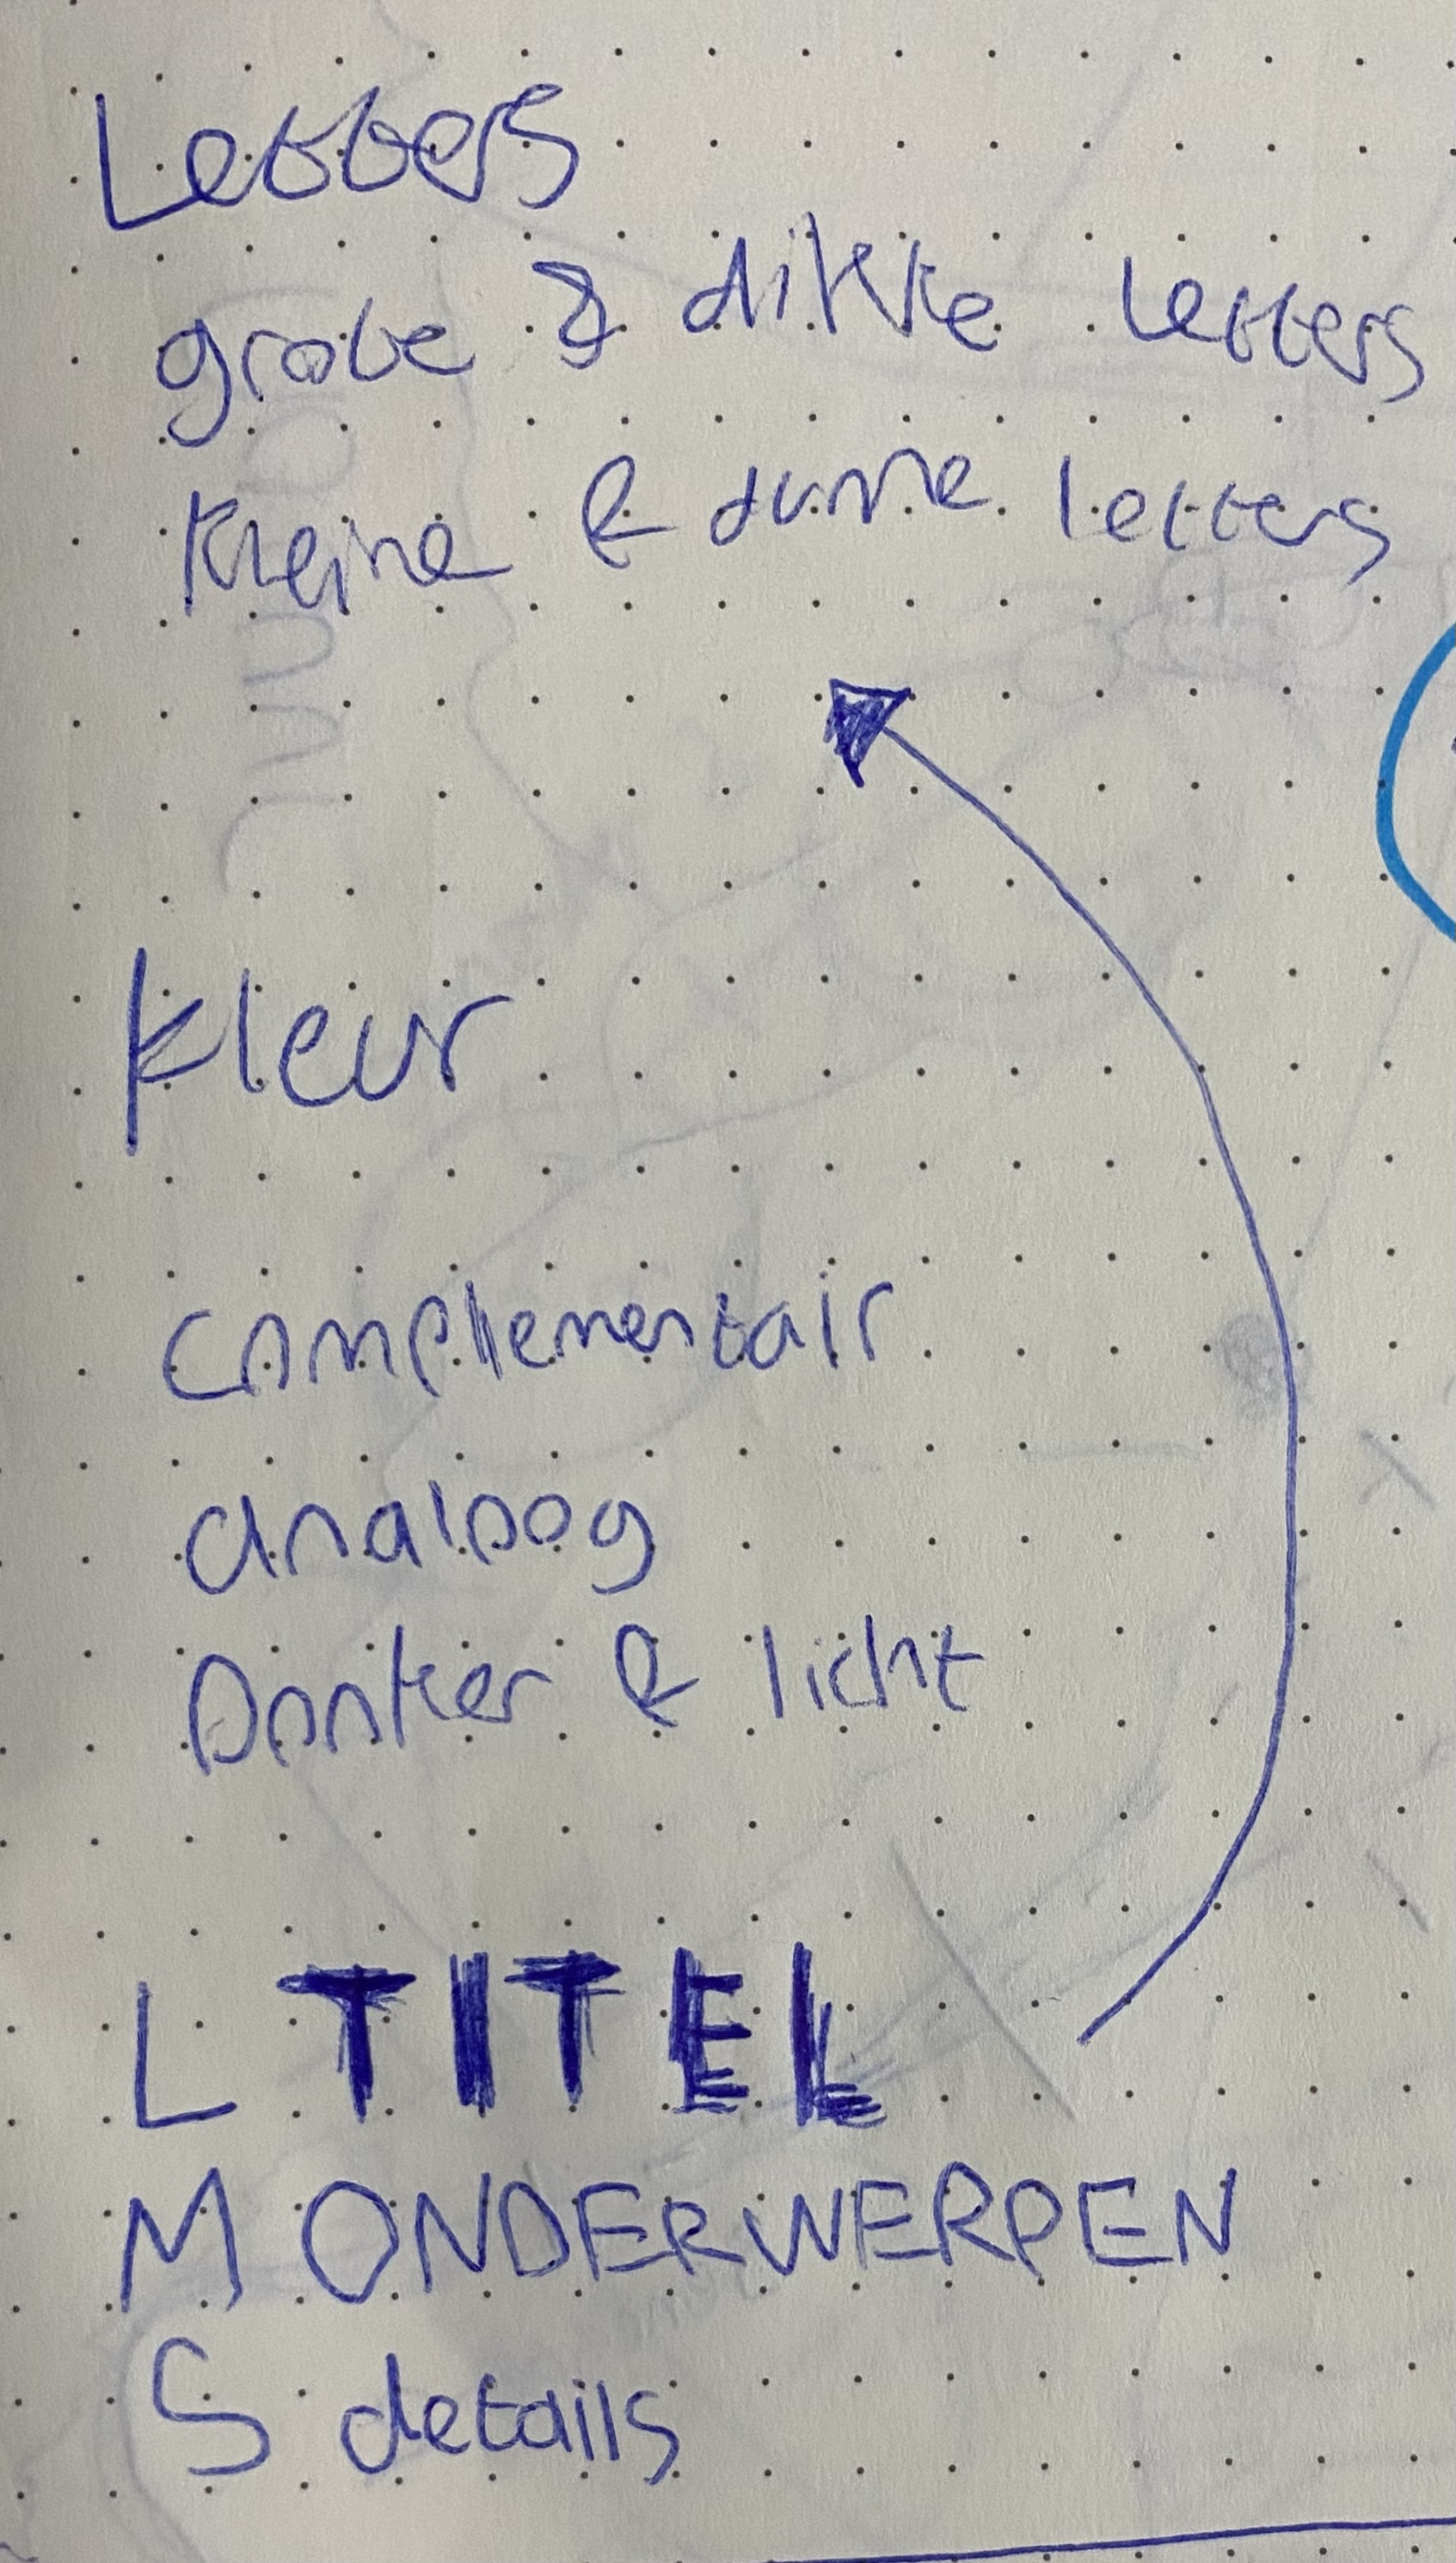 Letters
grote & dikke letters
kleine & dunne letters
kleur
complementair
analoog
Donker & licht
L TITEL
M ONDERWERPEN
S details